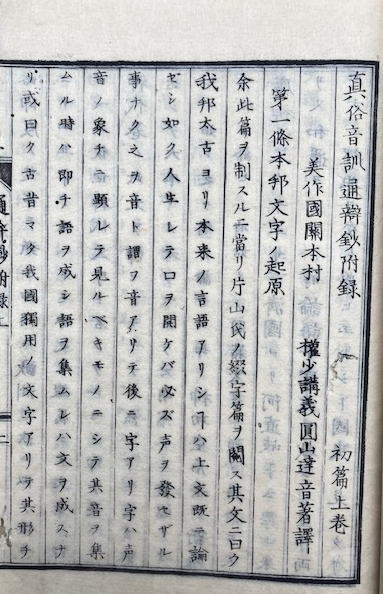 真俗音訓通辯鈔附録 初篇上卷
美作國關本村 權少講義圓山達音著譯
第一條本邦文字ノ起原
余此篇ヲ制スルニ當リ片山氏ノ綴字篇ヲ閲ス其文ニ曰ク
我邦太古ヨリ本来ノ言語アリシヿハ上文既ニ論
ゼシ如ク人生レテ口ヲ開ケバ必ズ声ヲ發セザル
事ナク之ヲ音ト謂フ音アリテ後ニ字アリ字ハ声
音ノ象チニ顕レテ見ルベキモノニシテ其音ヲ集
ムル時ハ即チ語ヲ成シ語ヲ集ムレハ文ヲ成スナ
リ或曰ク古昔マタ我國獨用ノ文字アリテ其形チ
通辯鈔附録上
二